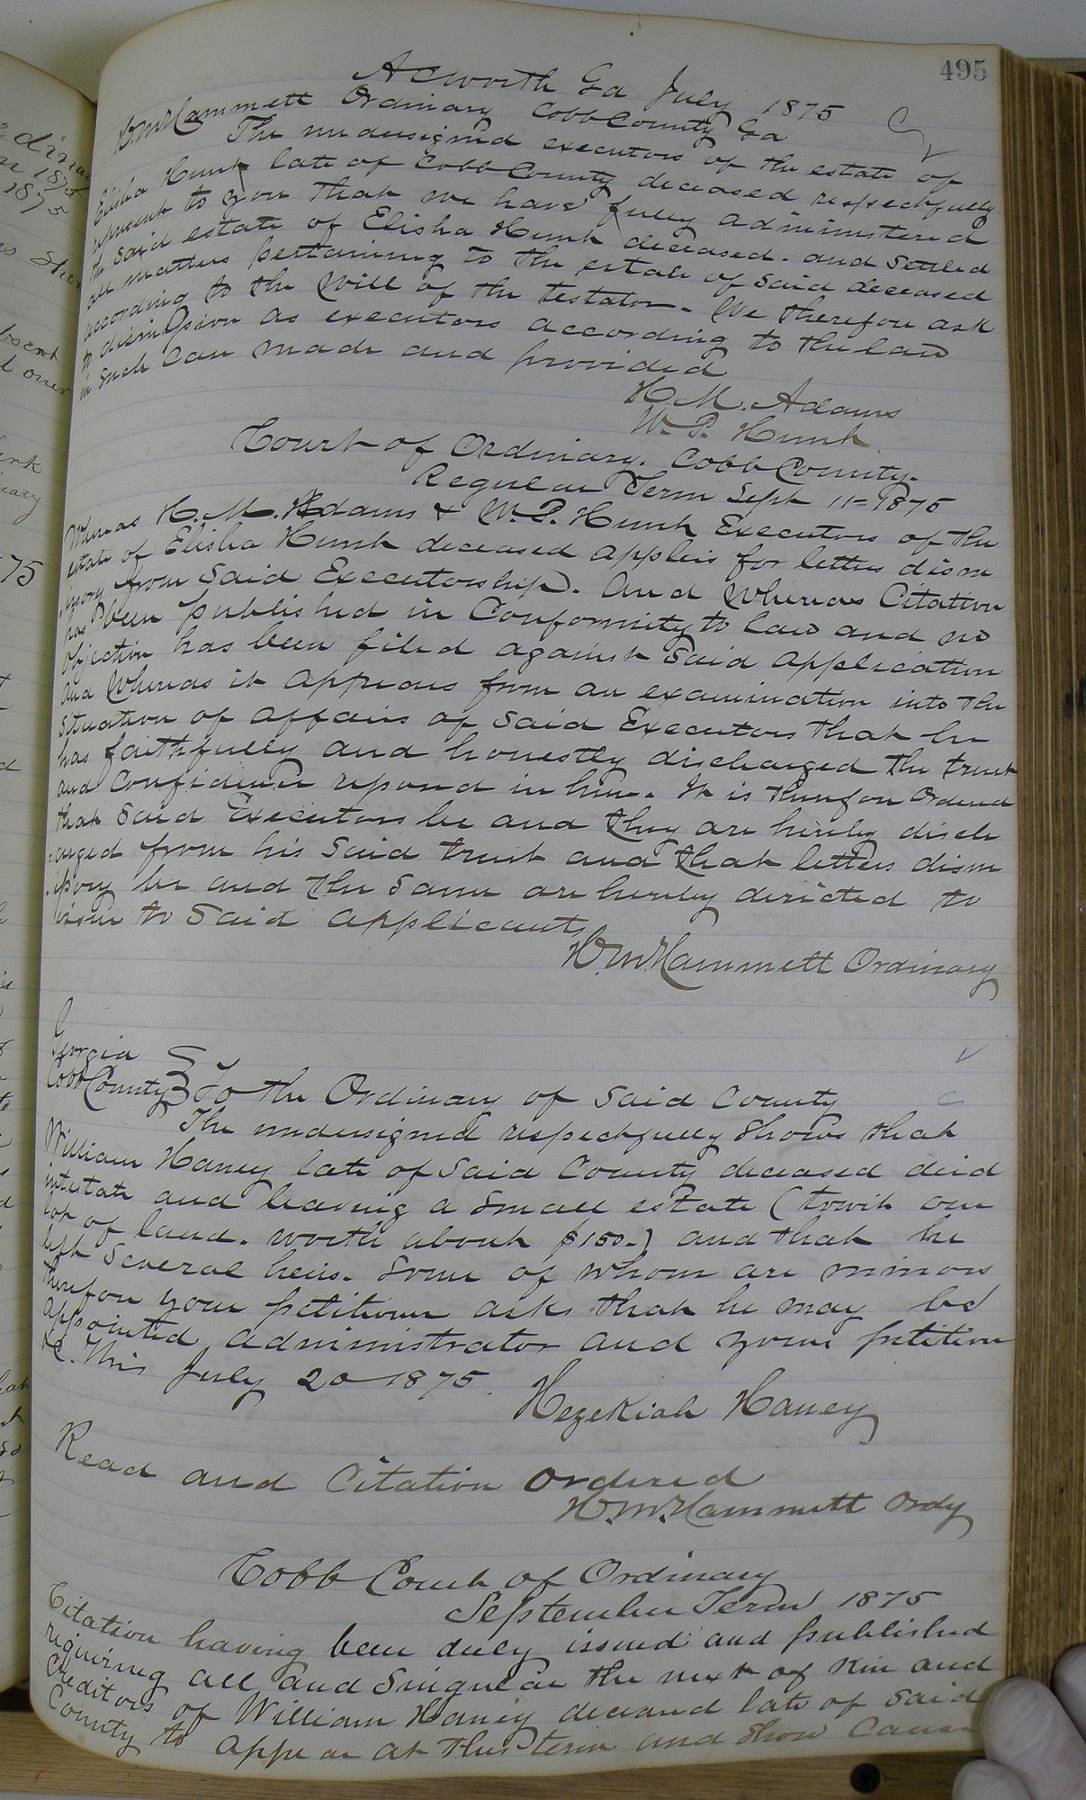 495
Acworth Ga July 1875
Hammett Ordinary Cobb County Ga
The undersigned executors of the estate of
Elisha Hunt late of Cobb County deceased respectfully
represent to you that we have fully administered
the said estate of Elisha Hunt deceased. and settled
all matters pertaining to the estate of said deceased
according to the Will of the testator. We therefore ask
to dismission as executors according to the law
in such case made and provided
H. M. Adams
W. P. Hunt
Court of Ordinary. Cobb County.
Regular Term Sept 11 = 1875
Whereas H. M. Adams & W. P. Hunt Executors of the
estate of Elisha Hunt deceased applies for letters dism
issory from said Executorship. And Whereas Citation
has been published in Conformity to law and no
Objection has been filed against said application
and Whereas it appears from an examination into the
situation of affairs of said Executors that he
has faithfully and honestly discharged the trust
and Confidence reposed in him. It is therefore Ordered
that said Executors be and they are hereby disch
arged from his said trust and that letters dism
issory be and the same are hereby directed to
issue to said applicants
H. M. Hammett Ordinary
Georgia
Cobb County } To the Ordinary of said County
The undersigned respectfully shows that
William Haney late of said County deceased died
intestate and leaving a small estate (towit one
lot of land. worth about $150.) and that he
left several heirs. some of whom are minors
therefore your petitioner asks that he may be
appointed administrator and your petition
&c. This July 20 1875.
Hezekiah Haney
Read and Citation Ordered
H. M. Hammett Ordy
Cobb Court of Ordinary
September Term 1875
Citation having been duly issued and published
requiring all and singular the next of kin and
Creditors of William Haney deceased late of said
County to appear at this term and show Cause